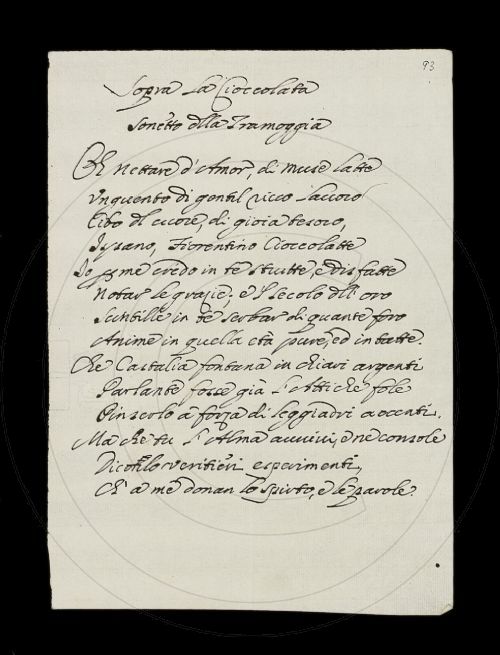 93
Sopra La Cioccolata
Sonetto dlla Tramoggia
Oh Nettare d'Amor, di Muse latte
Unguento di gentil ricco lauoro
Cibo dl cuore, di gioia tesoro,
Ispano, Fiorentino Cioccolatte
Io p me credo in te strutte, e disfatte
Notar le grazie; e l secolo dll' oro
Scintille in te serbar di quante foro
Anime in quella età pure, ed intatte.
Che Castalia fontana in chiari argenti
Parlante fosse già l'Attiche fole
Pinserlo a forza di leggiadri accenti.
Ma che tu l'Alma auuiui, e ne console
Dicotilo veritieri esperimenti,
Ch' a me donan lo spirto, e le parole.